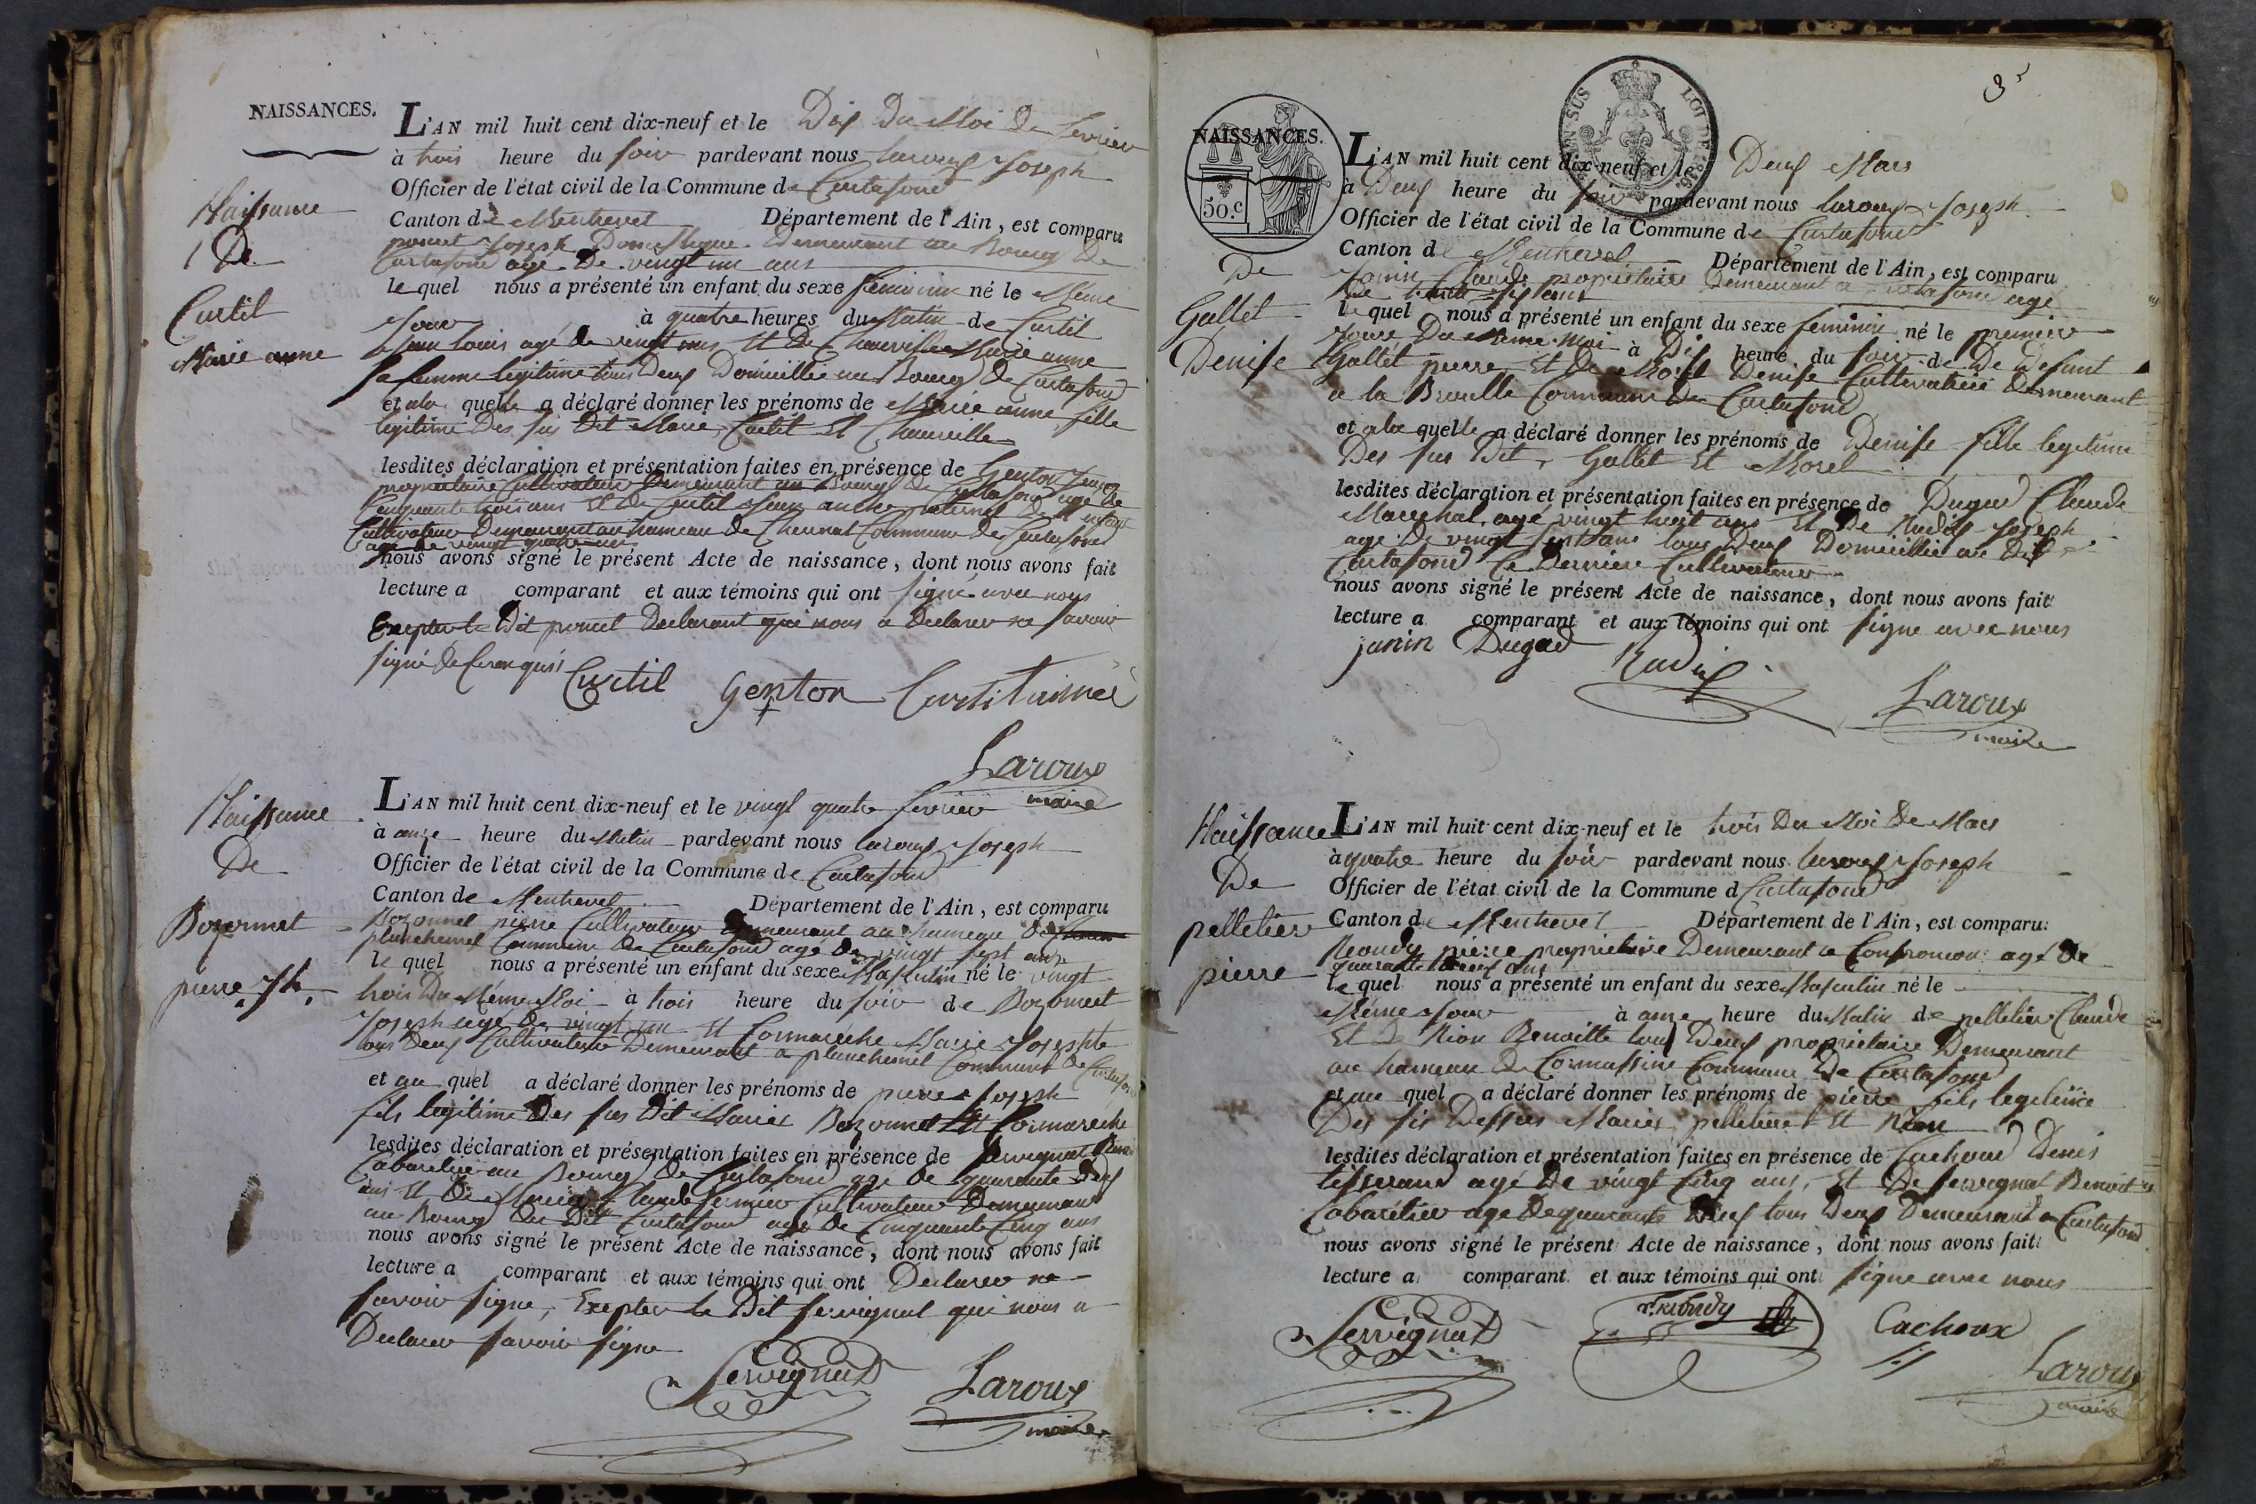 NAISSANCES.
Naissance
De
Curtil
Marie anne
L'AN mil huit cent dix-neuf et le Dix Du Moi De fevrier
à trois heure du soir pardevant nous laroux Joseph
Officier de l'état civil de la Commune de Curtafond
Canton de Montrevel Département de l'Ain, est comparu
poncet Joseph Domestique Demeurant au Bourg De
Curtafond agé De vingt un ans
le quel nous a présenté un enfant du sexe feminin né le Même
Jour à quatre heures du Matin de Curtil
Jean Louis agé de vingt ans Et De Marie anne
sa femme legitime tous Deux Domicillié au Bourg De Curtafond
et a la quelle a déclaré donner les prénoms de Marie anne fille
legitime Des sus Dit Marié Curtil Et
lesdites déclaration et présentation faites en présence de Genton
proprietaire Cultivateur Demeurant au Bourg De Curtafond agé De
Cinquante trois ans Et De Curtil Jean
Cultivateur Demeurant au hameau de Commune De Curtafond
agé De vingt quatre ans
nous avons signé le présent Acte de naissance, dont nous avons fait
lecture a comparant et aux témoins qui ont signé avec nous
Exepter le Dit poncet Declarant qui nous a Declarer ne savoir
signé De Ce requis
Curtil Genton Curtil ainé
Laroux
maire
Naissance
De
Bozonnet
pierre Jh.
L'AN mil huit cent dix-neuf et le vingt quatre fevrier
à onze heure du Matin pardevant nous laroux Joseph
Officier de l'état civil de la Commune de Curtafond
Canton de Montrevel Département de l'Ain, est comparu
Bozonnet pierre Cultivateur Demeurant au hameau De
planchemel Commune De Curtafond agé De vingt sept ans
le quel nous a présenté un enfant du sexe Masculin né le vingt
trois Du Même Moi à trois heure du soir de Bozonnet
Joseph agé De vingt un Et Cormareche Marie Josephte
tous Deux Cultivateur Demeurant a planchemel Commune De Curtafond
et au quel a déclaré donner les prénoms de pierre Joseph
fils legitime Des sus Dit Mariés Bozonnet Et Cormareche
lesdites déclaration et présentation faites en présence de servignat Benoit
Cabaretier au Bourg De Curtafond agé De quarante Deux
ans Et De Claude Cultivateur Demeurant
au Bourg Du Dit Curtafond agé De Cinquante Cinq ans
nous avons signé le présent Acte de naissance, dont nous avons fait
lecture a comparant et aux témoins qui ont Declarer ne
savoir signe, Exepter le Dit servignat qui nous a
Declarer savoir signe
Servignat Laroux
maire
3
TIMBRE EN SUS LOI DE 1816.
50.c
NAISSANCES.
De
Gallet
Denise
L'AN mil huit cent dix-neuf et le Deux Mars
à Deux heure du soir pardevant nous laroux Joseph
Officier de l'état civil de la Commune de Curtafond
Canton de Montrevel Département de l'Ain, est comparu
Janin Claude propriétaire Demeurant a Curtafond agé
De trente six ans
le quel nous a présenté un enfant du sexe feminin né le premier
Jour Du Même Moi à Dix heure du soir de De Defunt
Gallet pierre Et De Morel Denise Cultivatrice Demeurant
a la Commune De Curtafond
et a la quelle a déclaré donner les prénoms de Denise fille legitime
Des sus Dit, Gallet Et Morel
lesdites déclaration et présentation faites en présence de Dugad Claude
Marechal, agé vingt huit ans Et De Joseph
agé De vingt ans tous Deux Domicillié au Dit
Curtafond Ce Dernier Cultivateur
nous avons signé le présent Acte de naissance, dont nous avons fait
lecture a comparant et aux témoins qui ont signe avec nous
janin Dugad
Laroux
maire
Naissance
De
pelletier
pierre
L'AN mil huit cent dix-neuf et le trois Du Moi De Mars
à quatre heure du soir pardevant nous laroux Joseph
Officier de l'état civil de la Commune d Curtafond
Canton de Montrevel Département de l'Ain, est comparu
pierre propriétaire Demeurant a Confrançon agé De
quarante Deux ans
le quel nous a présenté un enfant du sexe Masculin né le
Même Jour à onze heure du Matin de pelletier Claude
Et De Nion Benoitte tous Deux propriétaire Demeurant
au hameau De Cormassine Commune De Curtafond
et au quel a déclaré donner les prénoms de pierre fils legitime
Des sis Dessus Mariés pelletier Et Nion
lesdites déclaration et présentation faites en présence de Cachoud Denis
tisserand agé De vingt Cinq ans, Et De servignat Benoit
Cabaretier agé De quarante Deux tous Deux Demeurant a Curtafond
nous avons signé le présent Acte de naissance, dont nous avons fait
lecture a comparant et aux témoins qui ont signe avec nous
Servignat Cachoux
Laroux
maire